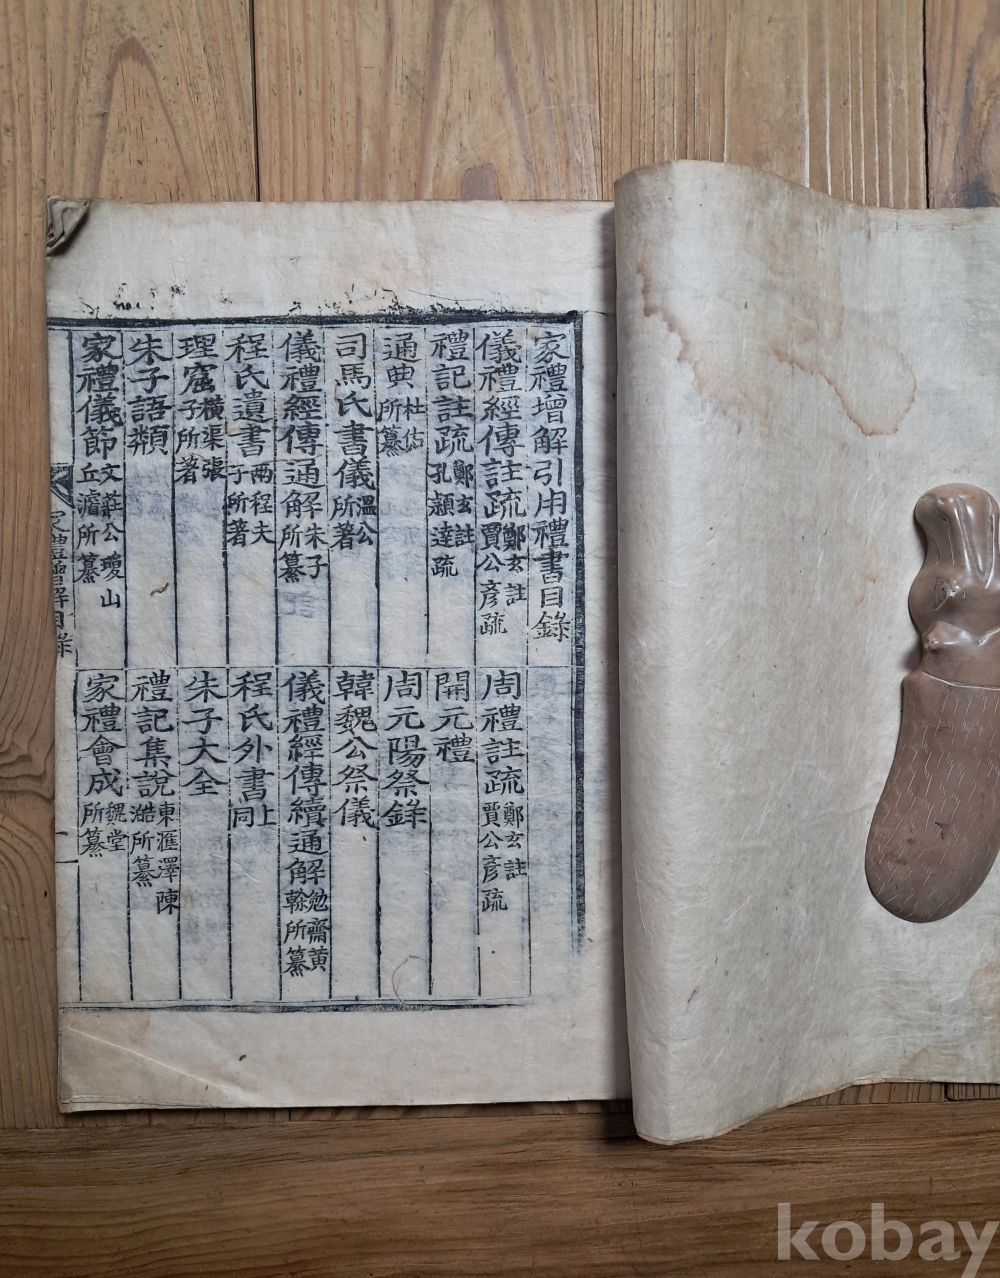 家禮增解引用禮書目錄
儀禮經傳註疏鄭玄註賈公彥疏
周禮註疏鄭玄註賈公彥疏
禮記註疏鄭玄註孔穎達疏
開元禮
通典杜佑所纂
周元陽祭錄
司馬氏書儀溫公所著
韓魏公祭儀
儀禮經傳通解朱子所纂
儀禮經傳續通解勉齋黃榦所纂
程氏遺書兩程夫子所著
程氏外書上同
理窟橫渠張子所著
朱子大全
朱子語類
禮記集說東滙澤陳澔所纂
家禮儀節文莊公瓊山丘濬所纂
家禮會成魏堂所纂
家禮增解目錄
一
kobay